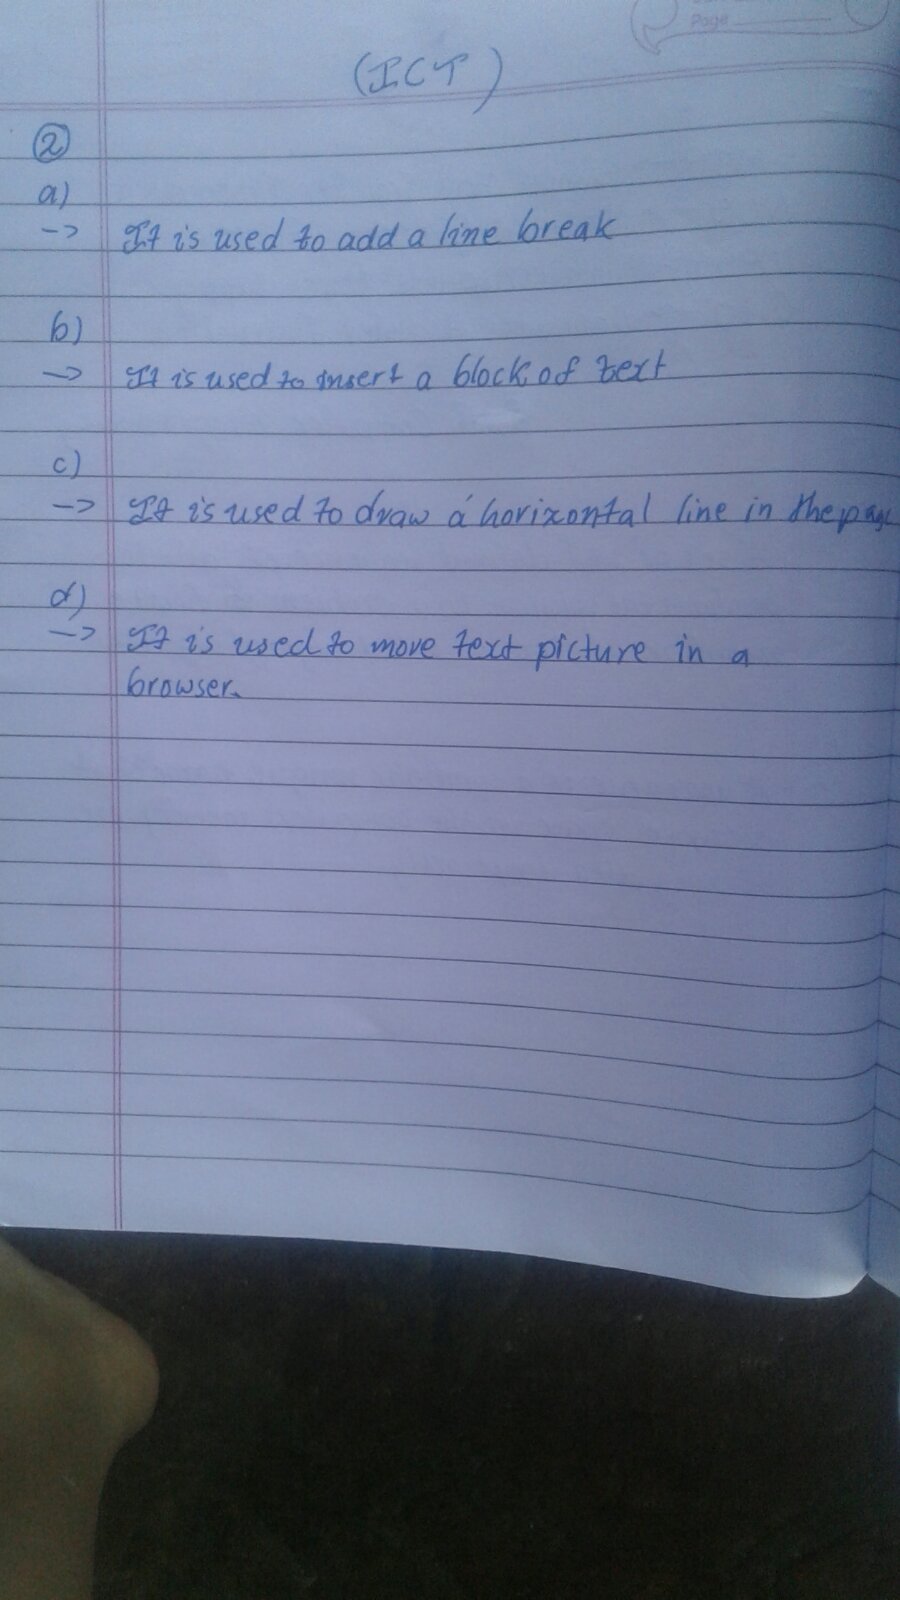 Page
(ICT)
②
a)
-> It is used to add a line break
b)
-> It is used to insert a block of text
c)
-> It is used to draw a horixontal line in the page
d)
-> It is used to move text picture in a
browser.